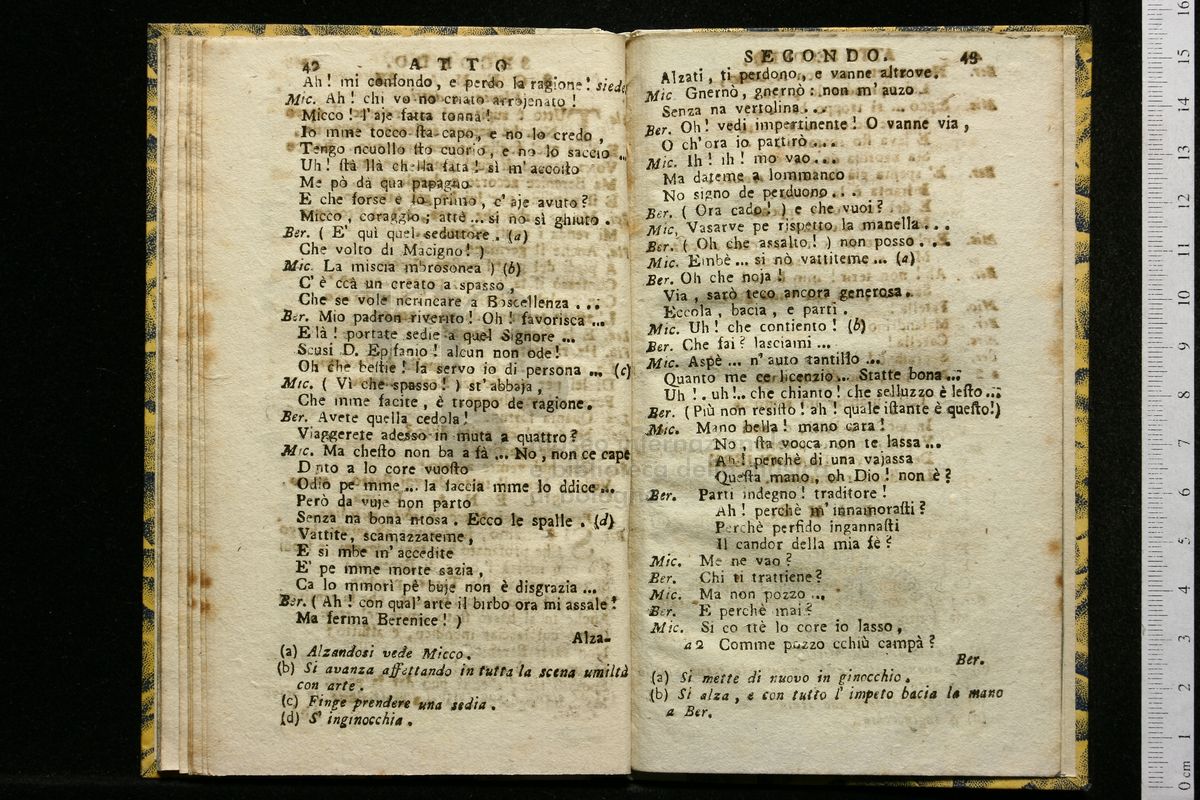 42 ATTO
Ah! mi confondo, e perdo la ragione! siede
Mic. Ah! chi vo no criato arrojenato!
Micco! l'aje fatta tonna!
Io mme tocco sta capo, e no lo credo,
Tengo ncuollo sto cuorio, e no lo saccio ..
Uh! sta llà chella fata! sì m'accosto
Me pò dà qua papagno.
E che forse è lo primo, c'aje avuto?
Micco, coraggio; attè... si no sì ghiuto.
Ber. ( E' quì quel seduttore. (a)
Che volto di Macigno! )
Mic. La miscia mbrosonea ) (b)
C'è ccà un creato a spasso,
Che se vole ncrincare a Boscellenza ...
Ber. Mio padron riverito! Oh! favorisca ...
Elà! portate sedie a quel Signore ...
Scusi D. Epifanio! alcun non ode!
Oh che bestie! la servo io di persona ... (c)
Mic. ( Vì che spasso! ) st'abbaja,
Che mme facite, è troppo de ragione.
Ber. Avete quella cedola!
Viaggerete adesso in muta a quattro?
Mic. Ma chesto non ba a fà ... No, non ce cape
Dinto a lo core vuosto
Odio pe mme ... la faccia mme lo ddice ...
Però da vuje non parto
Senza na bona ntosa. Ecco le spalle. (d)
Vattite, scamazzateme,
E si mbe m'accedite
E' pe mme morte sazia,
Ca lo mmorì pe buje non è disgrazia ...
Ber. ( Ah! con qual'arte il birbo ora mi assale!
Ma ferma Berenice! )
Alza-
(a) Alzandosi vede Micco.
(b) Si avanza affettando in tutta la scena umiltà
con arte.
(c) Finge prendere una sedia.
(d) S'inginocchia.
SECONDO. 43
Alzati, ti perdono, e vanne altrove.
Mic. Gnernò, gnernò: non m'auzo
Senza na vertolina...
Ber. Oh! vedi impertinente! O vanne via,
O ch'ora io partirò...
Mic. Ih! ih! mo vao...
Ma dateme a lommanco
No signo de perduono...
Ber. ( Ora cado! ) e che vuoi?
Mic. Vasarve pe rispetto la manella...
Ber. ( Oh che assalto! ) non posso...
Mic. Embè ... si nò vattiteme ... (a)
Ber. Oh che noja!
Via, sarò teco ancora generosa.
Eccola, bacia, e parti.
Mic. Uh! che contiento! (b)
Ber. Che fai? lasciami ...
Mic. Aspè ... n'auto tantillo ...
Quanto me cerlicenzio... Statte bona...
Uh!.. uh!.. che chianto! che selluzzo è lesto...
Ber. (Più non resisto! ah! quale istante è questo!)
Mic. Mano bella! mano cara!
No, sta vocca non te lassa...
Ah! perchè di una vajassa
Questa mano, oh Dio! non è?
Ber. Parti indegno! traditore!
Ah! perchè m'innamorasti?
Perchè perfido ingannasti
Il candor della mia fè?
Mic. Me ne vao?
Ber. Chi ti trattiene?
Mic. Ma non pozzo ...
Ber. E perchè mai?
Mic. Si co ttè lo core io lasso,
a 2 Comme pozzo cchiù campà?
Ber.
(a) Si mette di nuovo in ginocchio.
(b) Si alza, e con tutto l'impeto bacia la mano
a Ber.